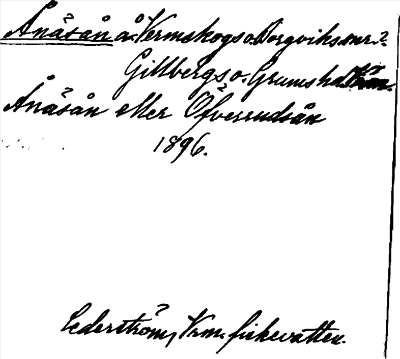 Ånäsån å. Värmskogs o. Borgviks snr.
Gillbergs o. Grums hd. Vrm.
Ånäsån eller Öfverudsån
1896.
Cederström, Vrm. fiskevatten.